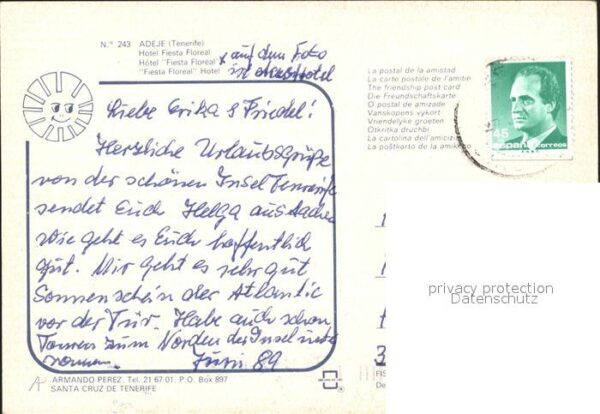 N.º 243 ADEJE (Tenerife)
Hotel Fiesta Floreal
Hôtel "Fiesta Floreal"
"Fiesta Floreal" Hotel
x auf dem Foto
ist Hotel
Liebe Erika & Friedel!
Herzliche Urlaubsgrüße
von der schönen Insel Teneriffe
sendet Euch Helga aus Aachen
wie geht es Euch hoffentlich
gut. Mir geht es sehr gut
Sonnenschein der Atlantic
vor der Tür. Habe auch schon
Touren zum Norden der Insel unter
nommen. Juni 89
La postal de la amistad
La carte postale de l'amitié
The friendship post card
Die Freundschaftskarte
O postal de amizade
Vanskapens vykort
Vriendelyke groeten
Otkritka druchbi
La cartolina dell'amiciz
La poŝtkarto de la amikeco
45
españa correos
privacy protection
Datenschutz
ARMANDO PEREZ. Tel. 21 67 01. P.O. Box 897
SANTA CRUZ DE TENERIFE
FIS
De